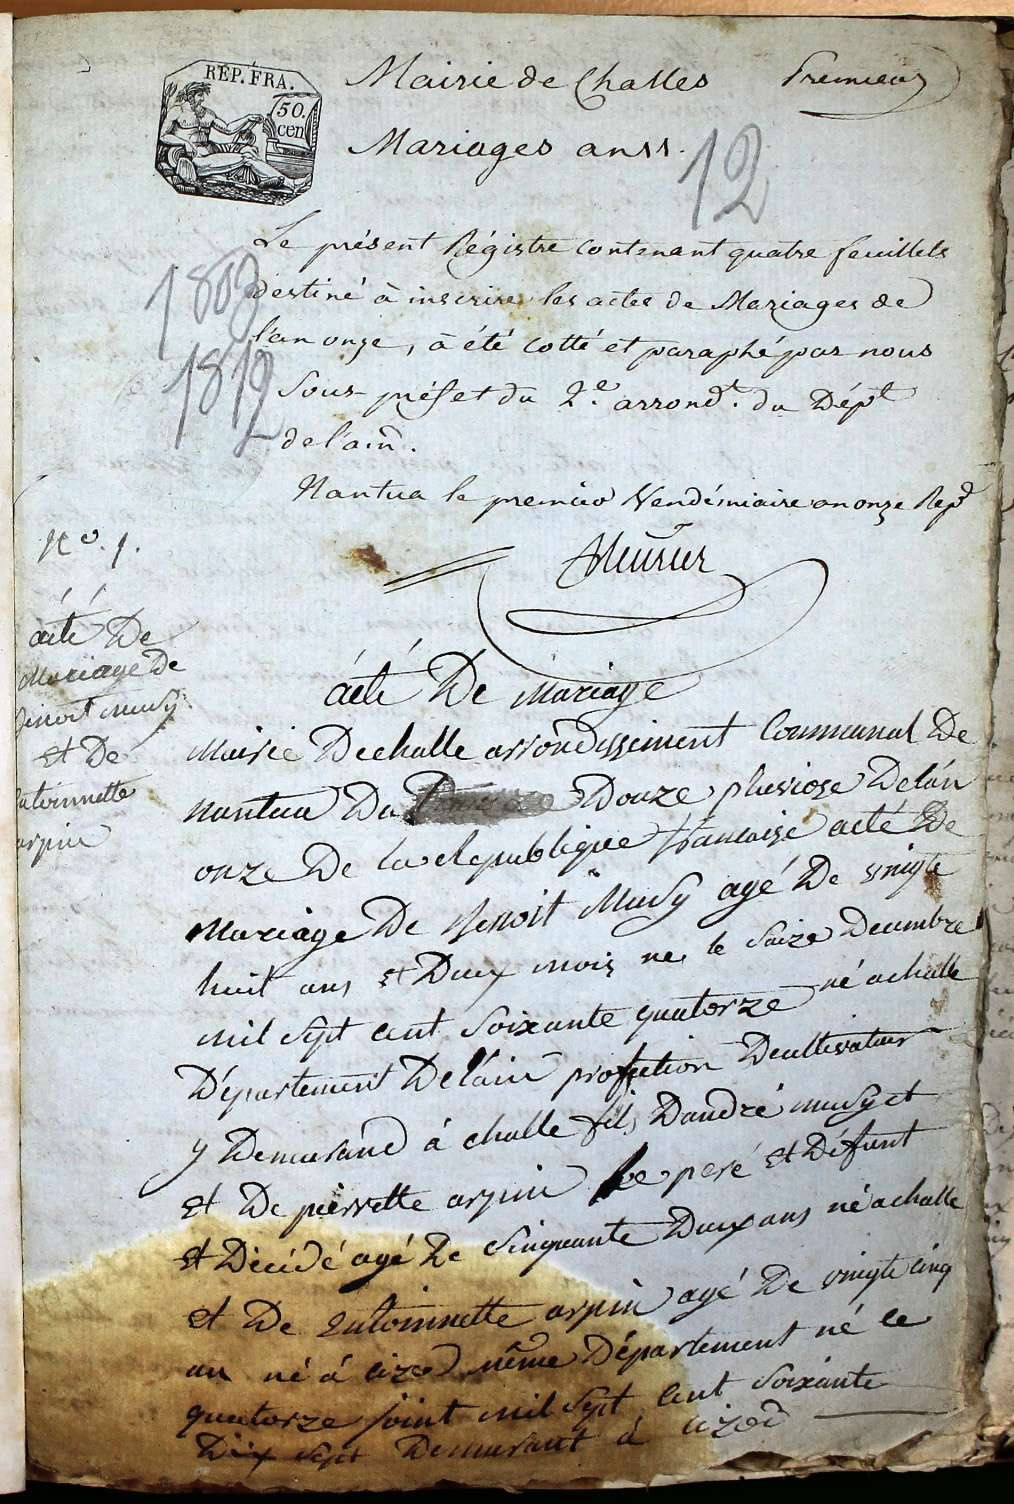 RÉP. FRA.
50.
cen
Mairie de Challes
Premier
Mariages an 11.
12
Le présent Régistre contenant quatre feuillets
destiné à inscrire les actes de Mariages de
l'an onze, à été cotté et paraphé par nous
Sous-préfet du 2e. arrondt. du Dépt
de l'ain.
1803
1812
Nantua le premier Vendémiaire an onze Rep
No. 1.
acté De
Mariage De
Benoit Musy
et De
antoinnette
arpin
acté De Mariage
Mairie De challe arrondissiment Communal De
nantua Du Douze pluviose Delan
onze De la Republique francaise acté De
Mariage De Benoit Musy agé De vingte
huit ans et Deux mois né le Saize Decembre
mil Sept cent Soixante quatorze né a challe
Département Delain profection Decultivateur
y Demurand à challe fils Dandré musy et
et De pierrette arpin le peré et Défunt
et Décidé agé De Sinquante Deux ans né a challe
et De antoinnette arpin agé De vingte cinq
an né à cized même Département né le
quatorze joint mil Sept cent Soixante
Dix Sept Demurant à cized